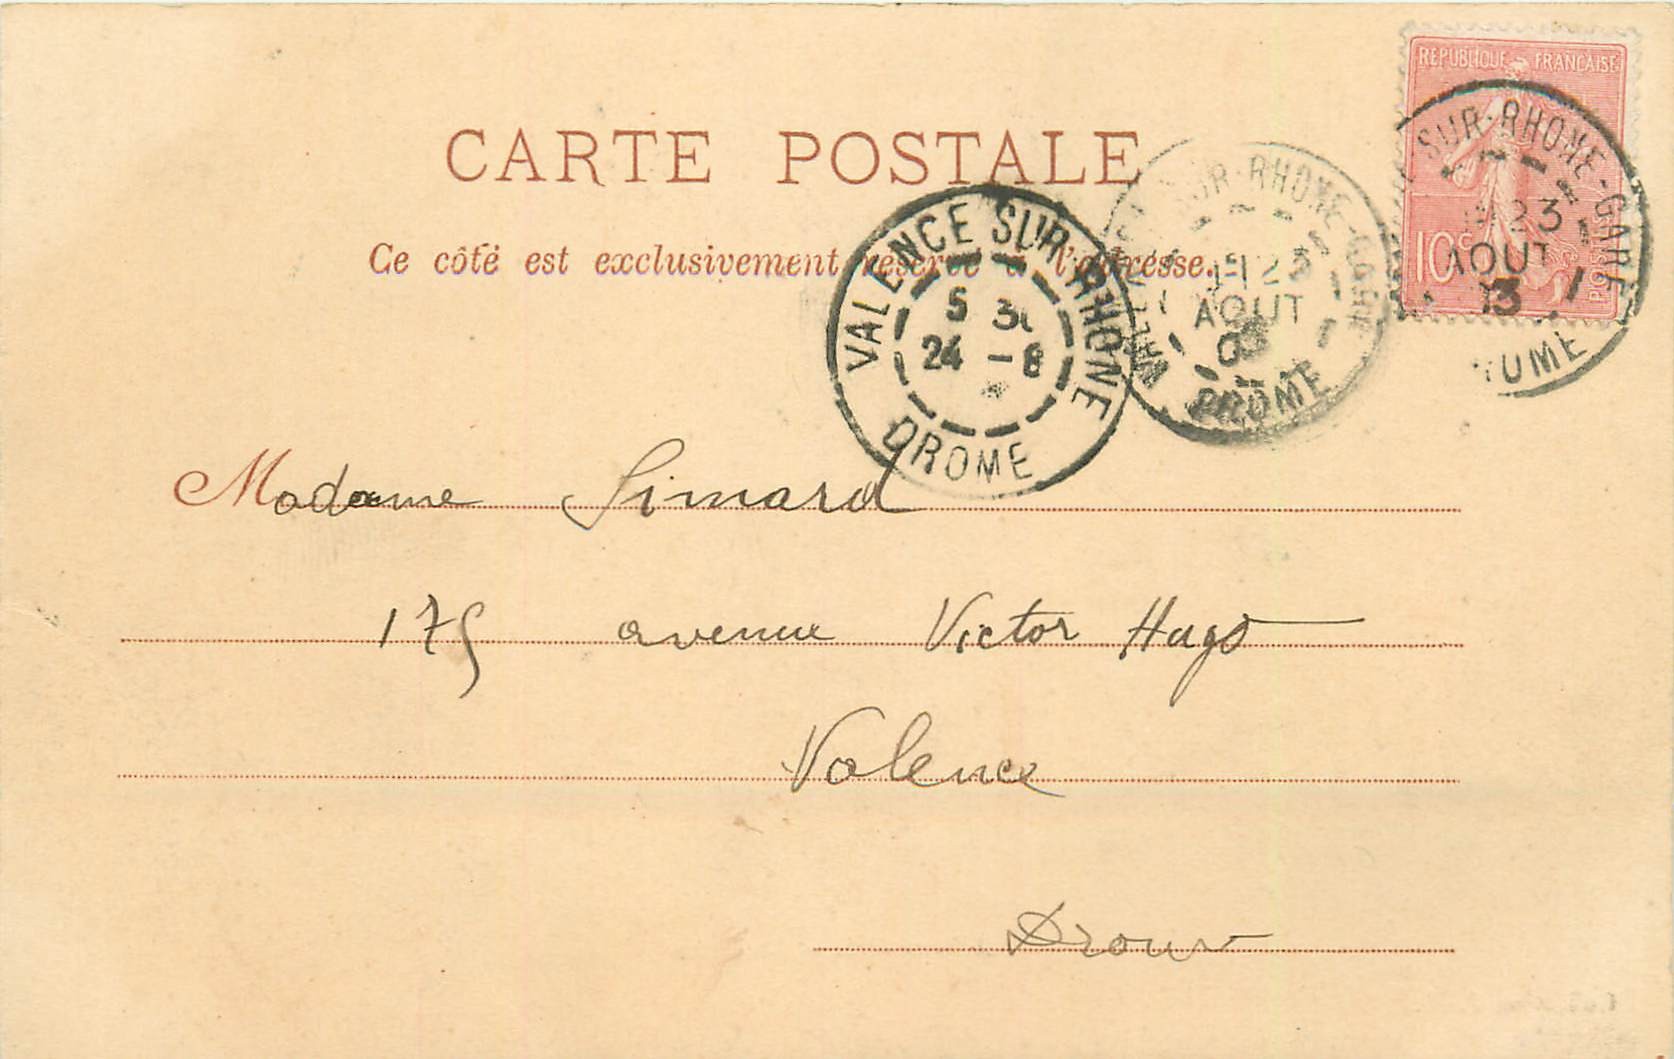 REPUBLIQUE FRANCAISE
10c POSTES
SUR-RHONE-GARE
23
AOUT
CARTE POSTALE
Ce côté est exclusivement réservé à l'adresse.
VALENCE SUR RHONE
5 30
24 -8
DROME
VALENCE SUR-RHONE-GARE
AOUT
DROME
Madame Simard
175 avenue Victor Hugo
Valence
Drome